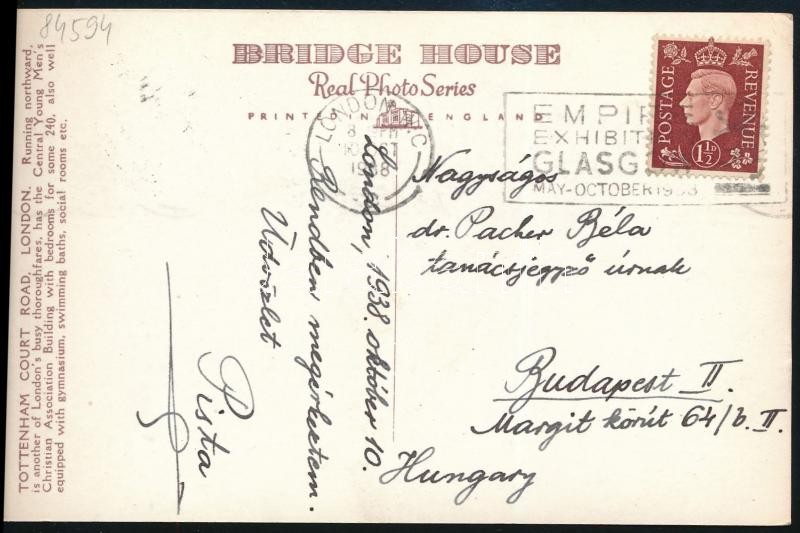 84594
BRIDGE HOUSE
Real Photo Series
PRINTED IN ENGLAND
TOTTENHAM COURT ROAD, LONDON. Running northward,
is another of London's busy thoroughfares, has the Central Young Men's
Christian Association Building with bedrooms for some 240, also well
equipped with gymnasium, swimming baths, social rooms etc.
LONDON W.C
8 PM
10 OCT
1938
EMPIR
EXHIBIT
GLASG
MAY-OCTOBER 1938
POSTAGE
REVENUE
1½D
London, 1938. október 10.
Rendben megérkeztem.
Üdvözlet
Pista
Nagyságos
dr. Pacher Béla
tanácsjegyző úrnak
Budapest II.
Margit körút 64/b. II.
Hungary